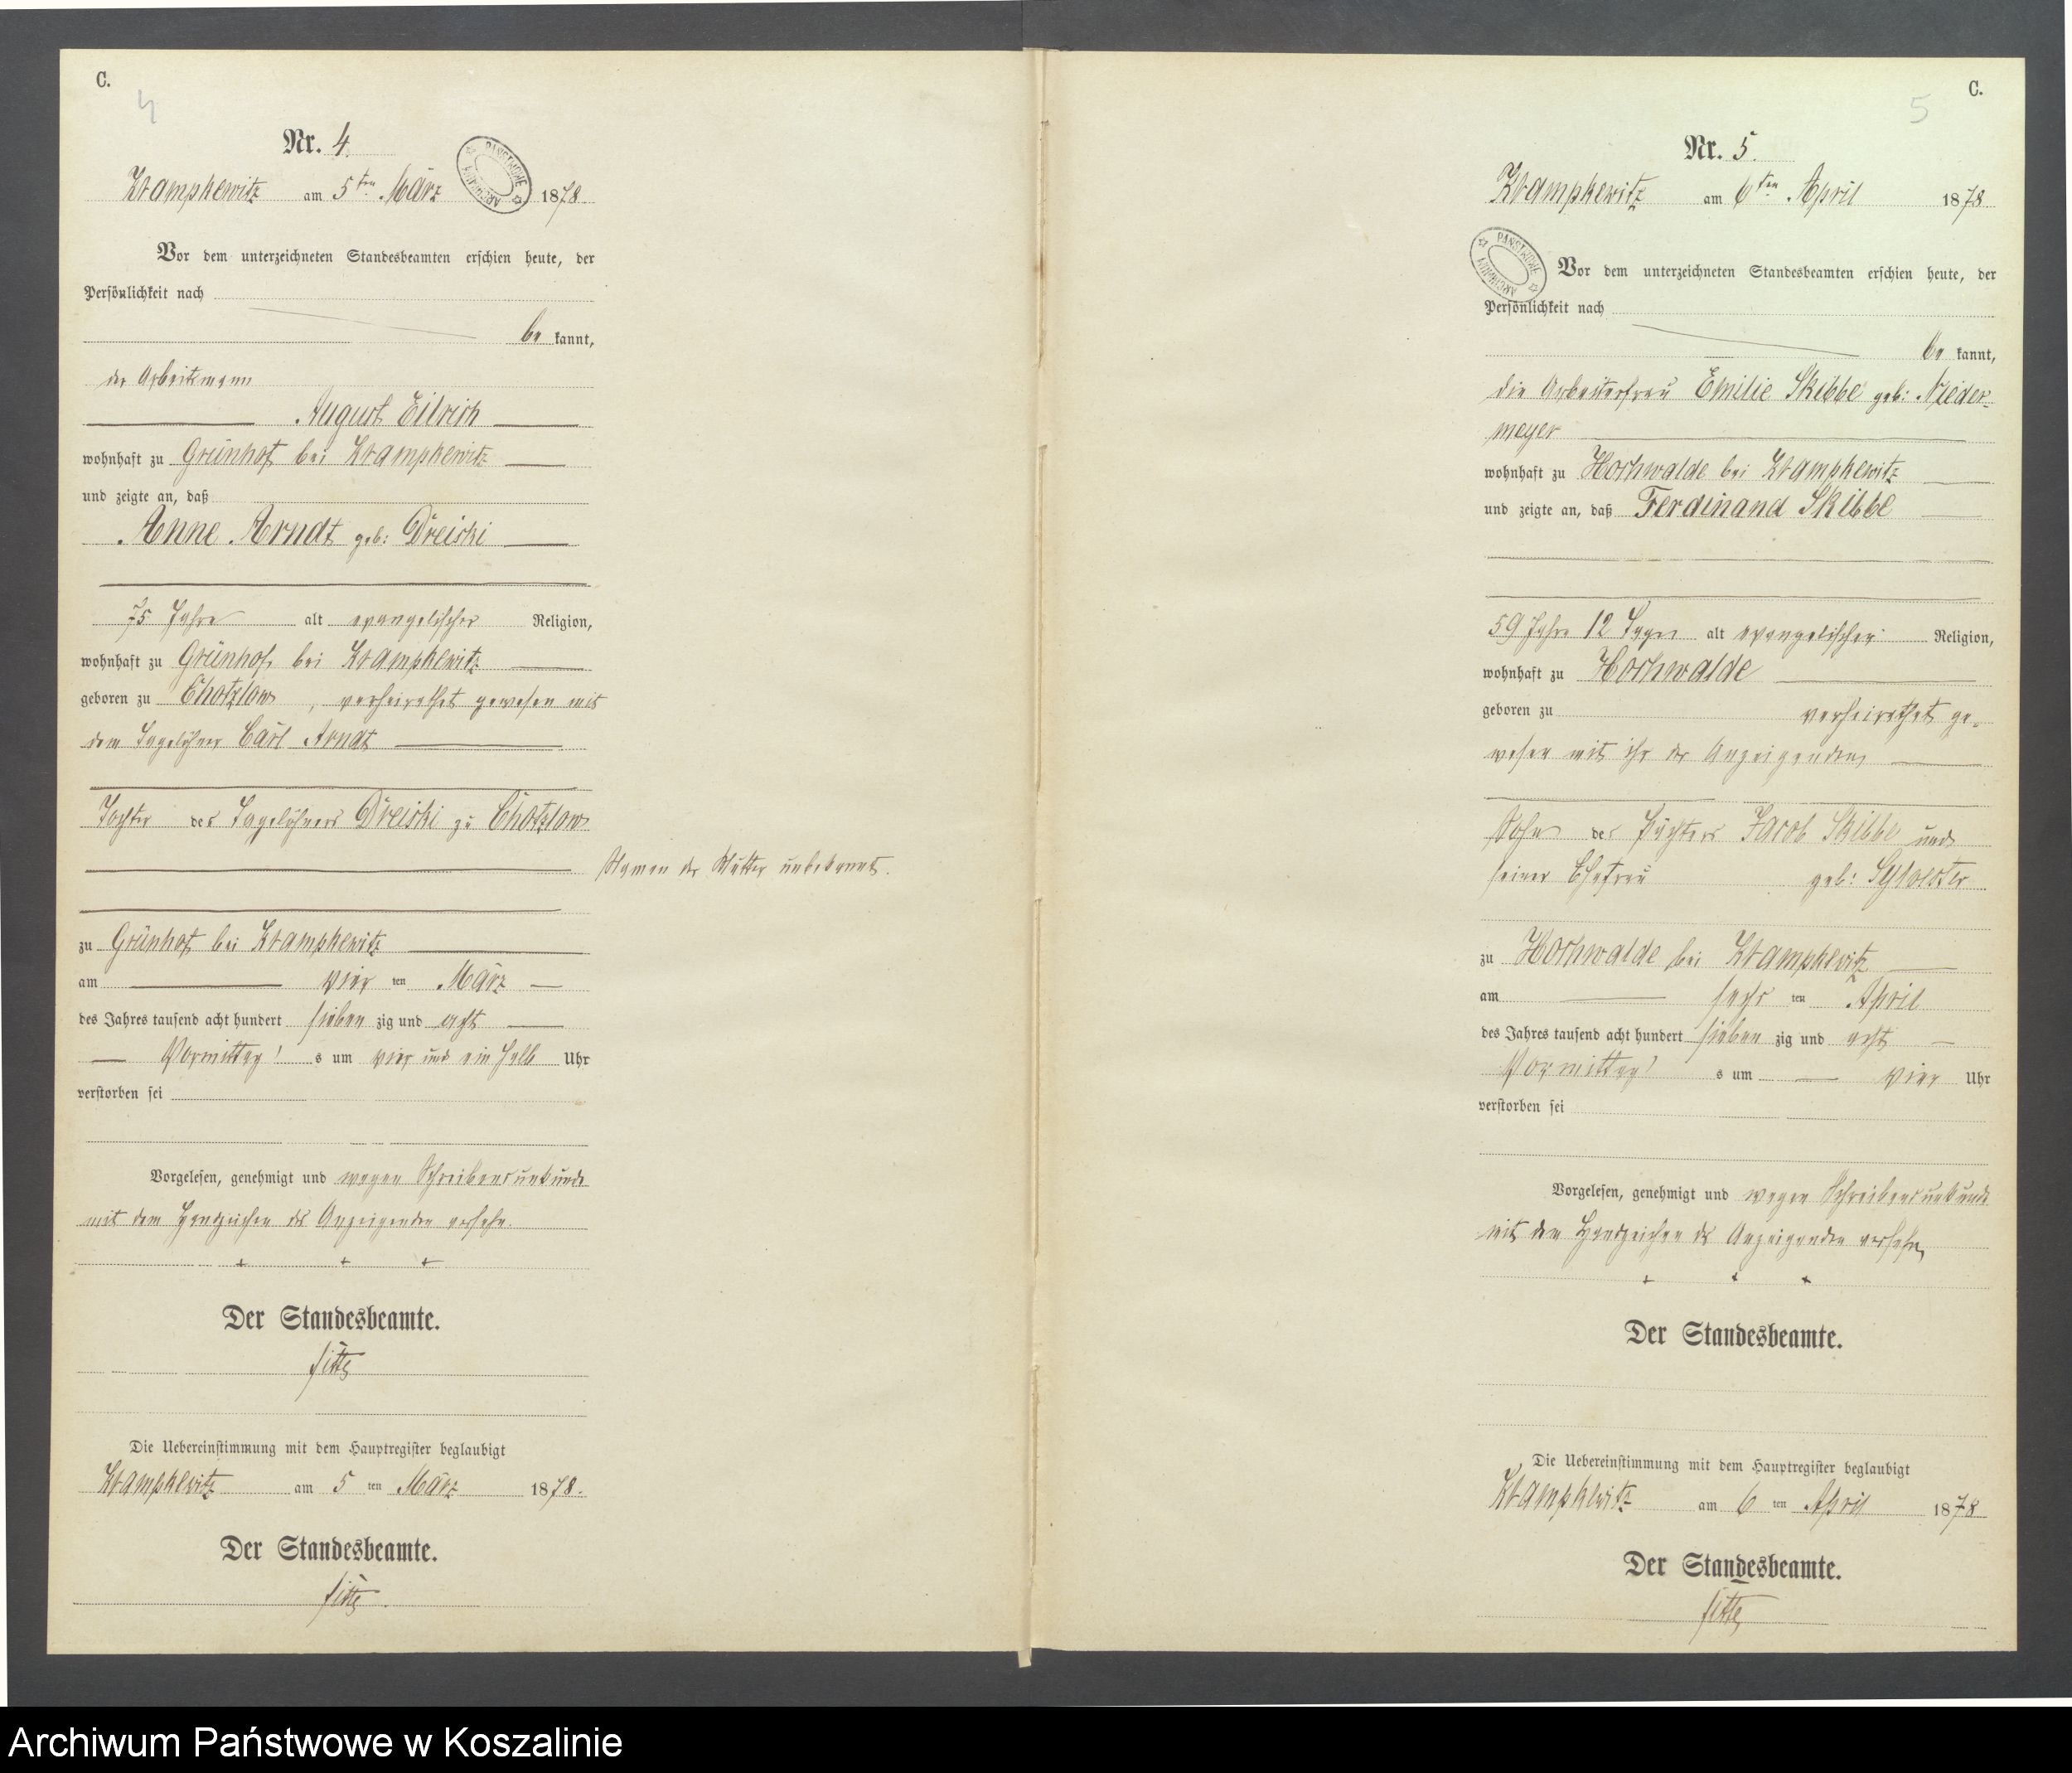 C.
4
Nr. 4.
Krampkewitz am 5ten März 1878.
ARCHIWUM PAŃSTWOWE
Vor dem unterzeichneten Standesbeamten erschien heute, der
Persönlichkeit nach
be kannt,
der Arbeitsmann
August Eilrich
wohnhaft zu Grünhof bei Krampkewitz
und zeigte an, daß
Anne Arndt geb: Dreiski
75 Jahre alt evangelischer Religion,
wohnhaft zu Grünhof bei Krampkewitz
geboren zu Chotzlow, verheirathet gewesen mit
dem Tagelöhner Carl Arndt
Tochter des Tagelöhners Dreiski zu Chotzlow
Namen der Mutter unbekannt.
zu Grünhof bei Krampkewitz
am vier ten März
des Jahres tausend acht hundert sieben zig und acht
Vormittag s um vier und ein halb Uhr
verstorben sei
Vorgelesen, genehmigt und wegen Schreibensunkunde
mit dem Handzeichen des Anzeigenden versehn.
+ + +
Der Standesbeamte.
Die Uebereinstimmung mit dem Hauptregister beglaubigt
Krampkewitz am 5 ten März 1878.
Der Standesbeamte.
C.
5
Nr. 5.
Krampkewitz am 6ten April 1878
ARCHIWUM PAŃSTWOWE
Vor dem unterzeichneten Standesbeamten erschien heute, der
Persönlichkeit nach
be kannt,
die Arbeiterfrau Emilie Skibbe geb: Nieder-
meyer
wohnhaft zu Hochwalde bei Krampkewitz
und zeigte an, daß Ferdinand Skibbe
59 Jahre 12 Tage alt evangelischer Religion,
wohnhaft zu Hochwalde
geboren zu verheirathet ge-
wesen mit ihr der Anzeigenden
Sohn des Pächters Jacob Skibbe und
seiner Ehefrau geb: Sylvester
zu Hochwalde bei Krampkewitz
am sechs ten April
des Jahres tausend acht hundert sieben zig und acht
Vormittag s um vier Uhr
verstorben sei
Vorgelesen, genehmigt und wegen Schreibensunkunde
mit dem Handzeichen der Anzeigenden versehn
+ + +
Der Standesbeamte.
Die Uebereinstimmung mit dem Hauptregister beglaubigt
Krampkewitz am 6 ten April 1878
Der Standesbeamte.
Archiwum Państwowe w Koszalinie